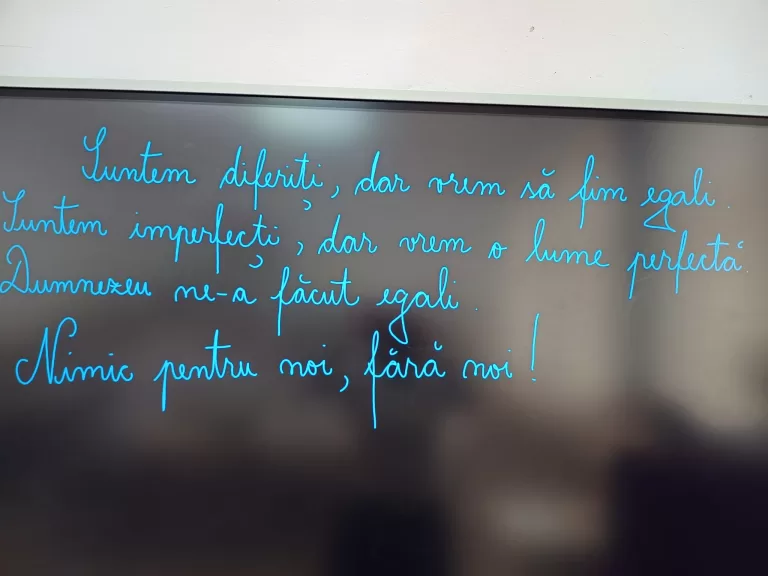 Suntem diferiți, dar vrem să fim egali.
Suntem imperfecți, dar vrem o lume perfectă.
Dumnezeu ne-a făcut egali.
Nimic pentru noi, fără noi!